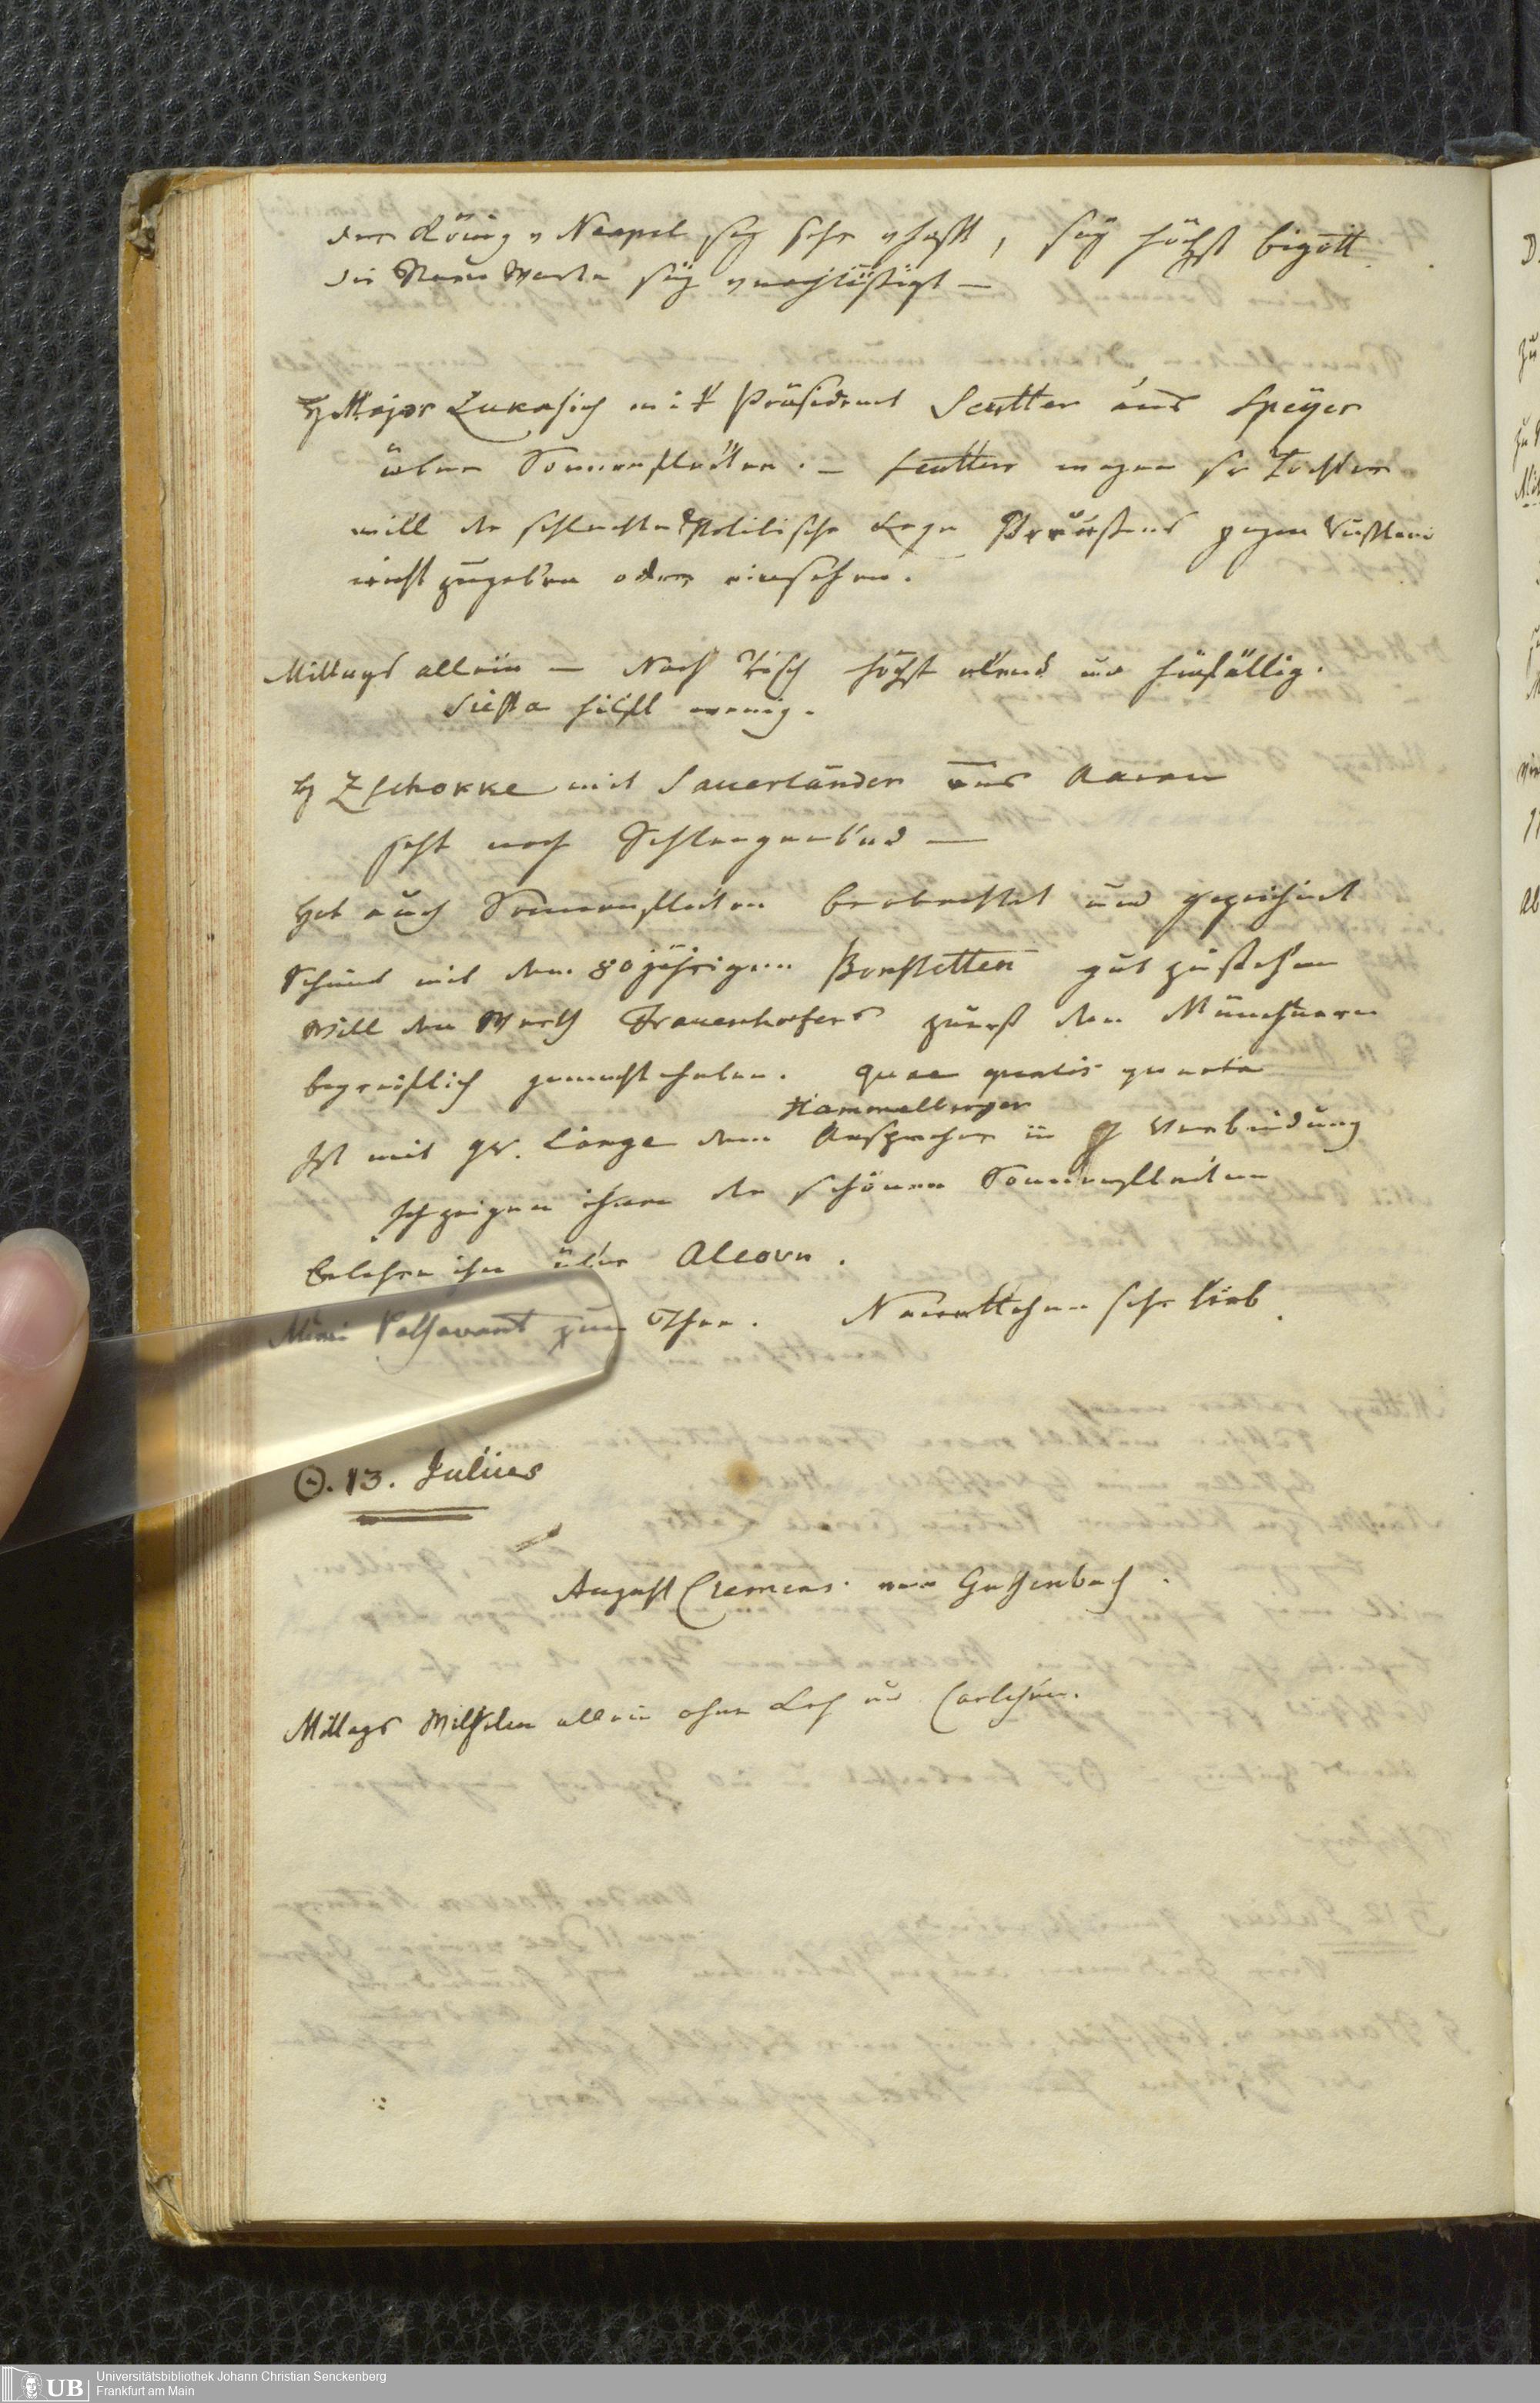 der König v Neapel sey sehr verhaßt, sey höchst bigott.
die Stern Warte sey vernachläßigt —
H Major Lukasich mit Präsident Seutter aus Speyer
über Sonnenflecken. — Seutter wegen Tochter
will die schlechte Politische Lage Preußens gegen Rußland
nicht zugeben oder einsehen.
Mittags allein — Nach Tisch höchst elend und hinfällig.
Siesta hilft wenig.
H Zschokke mit Sauerländer aus Aarau
geht nach Schlangenbad —
Hat auch Sonnenflecken beobachtet und gezeichnet
Scheint mit dem 80jährigen Bonstetten gut zu stehen
Will den Werth Frauenhofers zuerst den Münchnern
begreiflich gemacht haben. quae qualis quanta
Hammelburger
Ist mit Gr. Lange dem Ansprecher in Verbindung
Ich zeigen ihnen die schönen Sonnenflecken
Belehre ihn über Alcovn.
Mimi Passavant zum Thee. Nanettchen sehr lieb.
☉. 13. Julius
August Clemens von Guttenbach.
Mittags Wilhelm allein ohne und Carlchen.
UB
Universitätsbibliothek Johann Christian Senckenberg
Frankfurt am Main